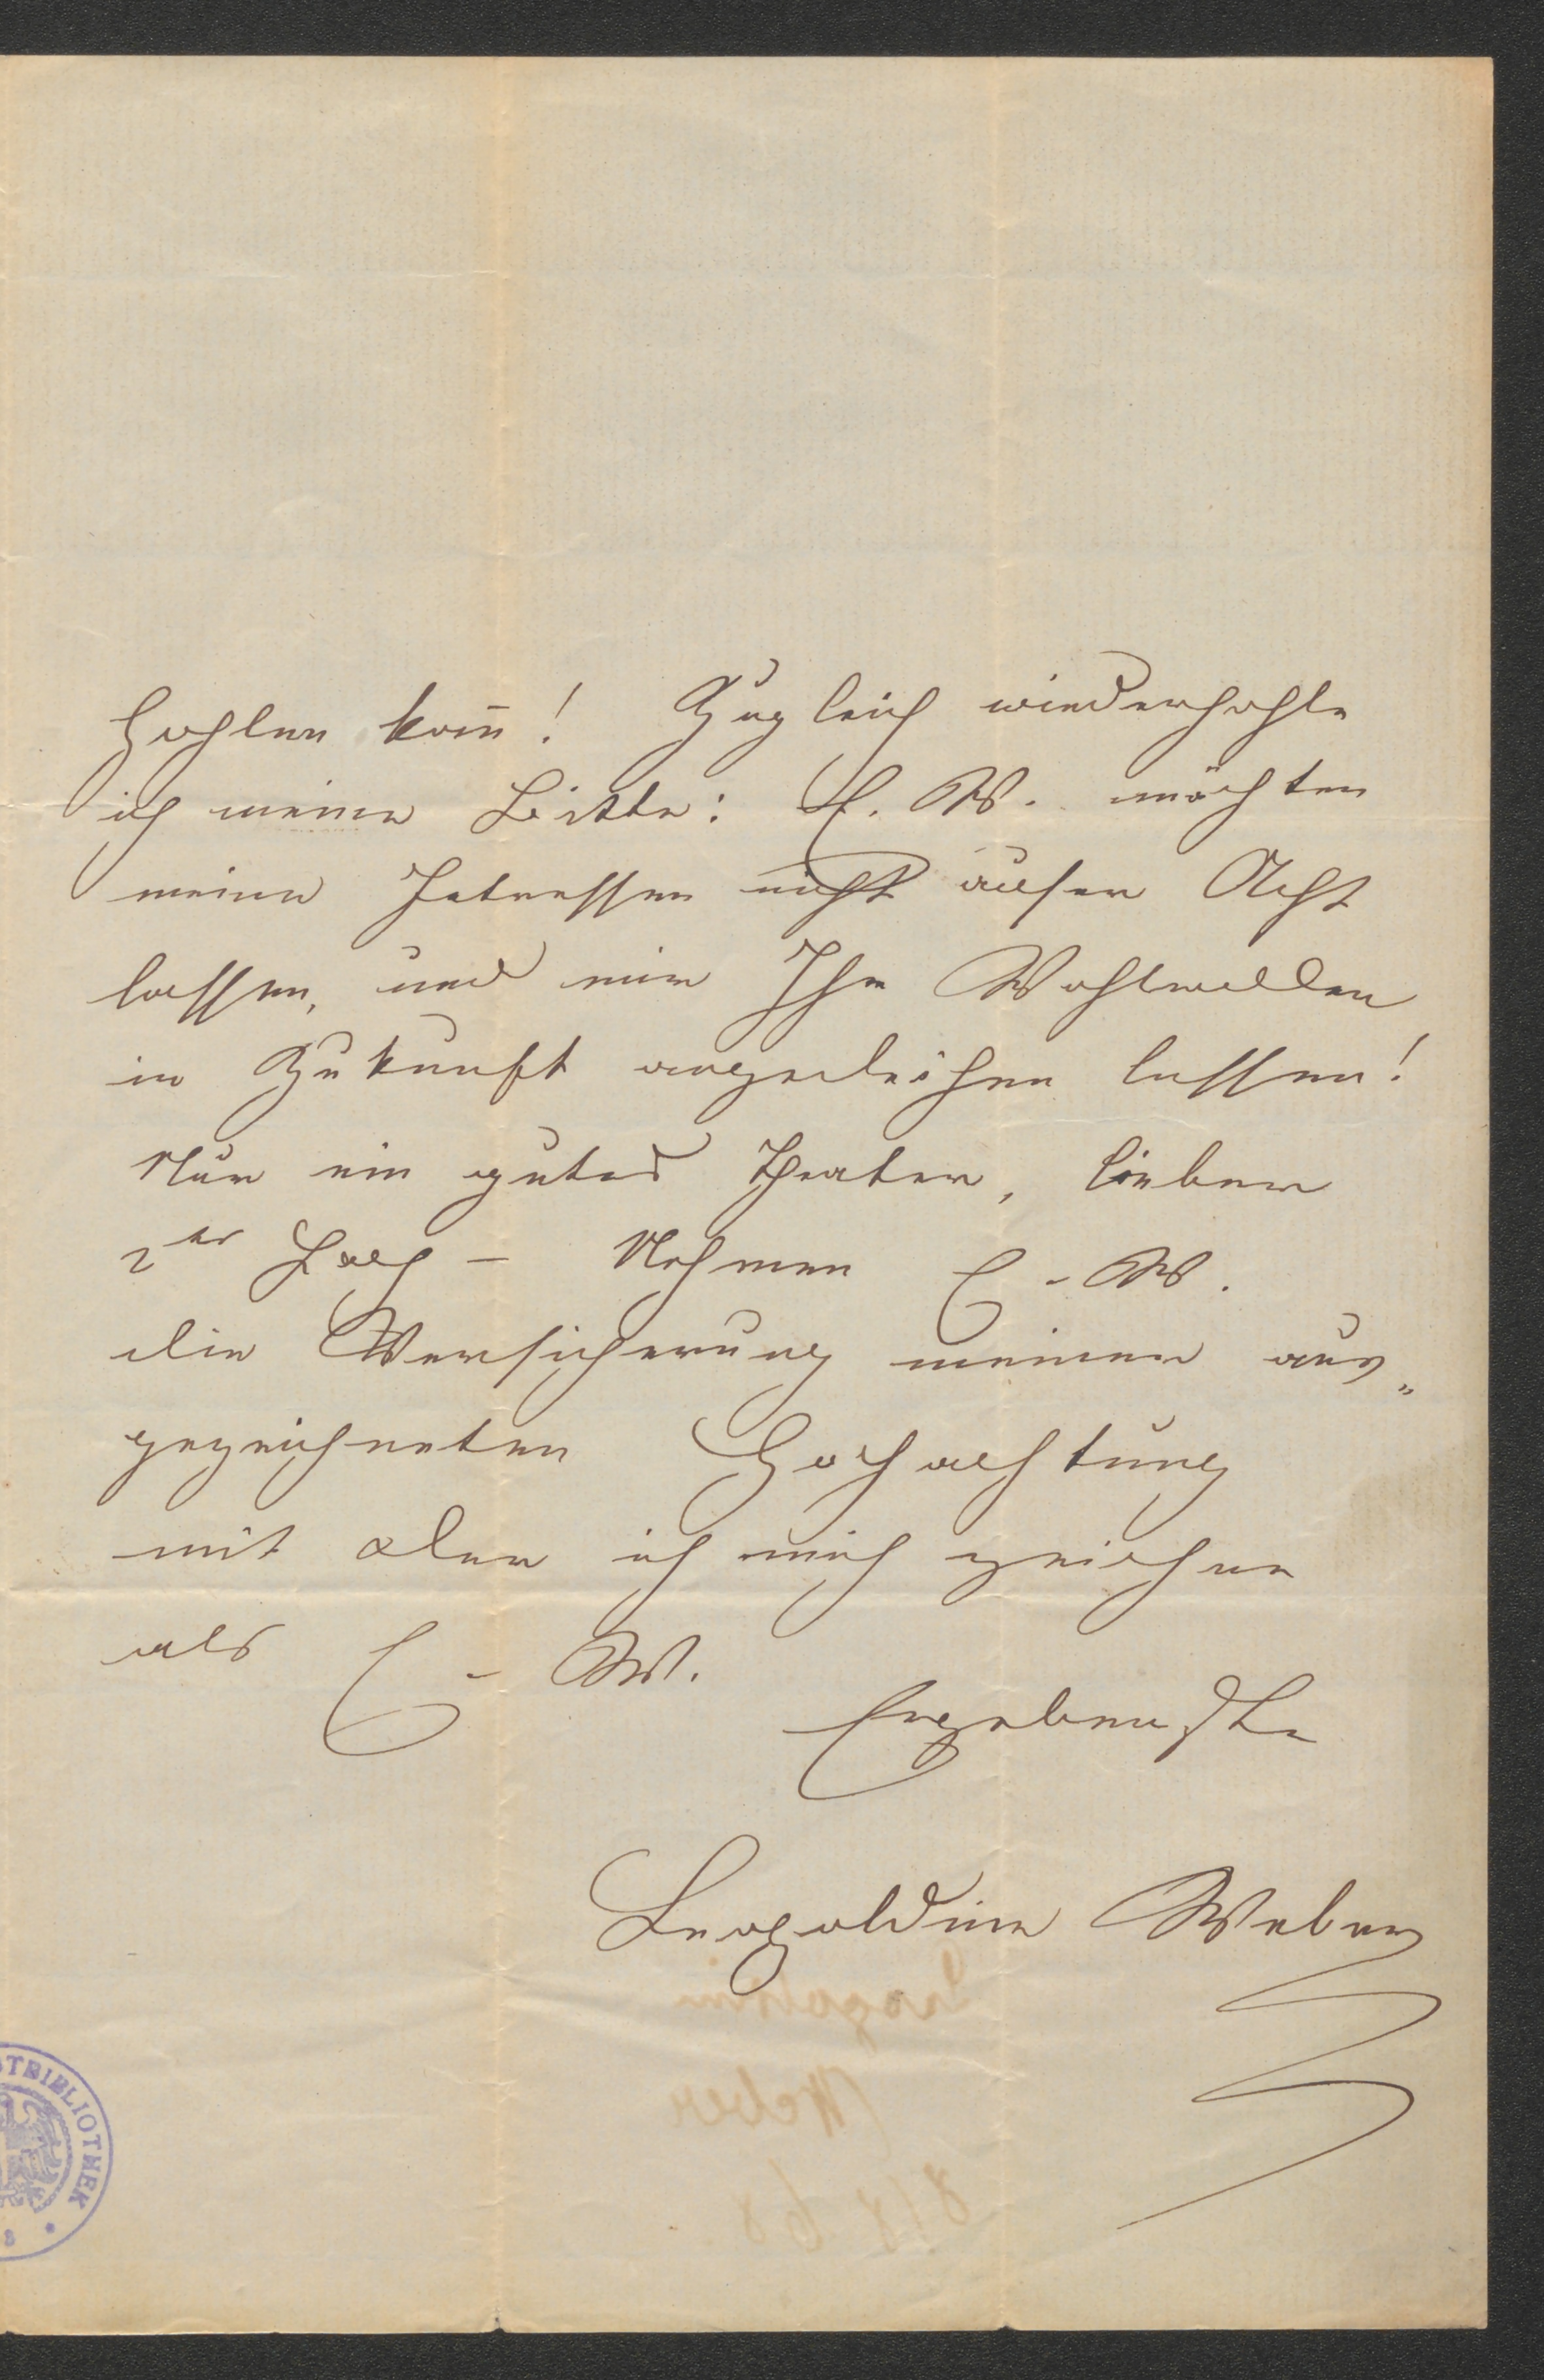 hohlen kan̅! Zugleich wiederhohle
ich meine Bitte: E. W. möchten
meine Intressen nicht auser Acht
lassen, und mir Ihr Wohlwollen
in Zukunft angedeihen lassen!
Nur ein gutes Theater, lieber
2ter
– Nehmen E. W.
die Versicherung meiner aus„
gezeichneten Hochachtung
mit der ich mich zeichne
als E. W.
Ergebenste
Leopoldine Weber
TBIBLIOTHEK